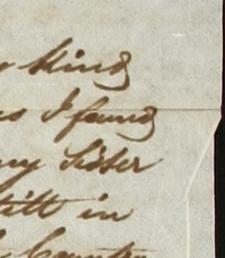 kind
I found
my Sister
still in
Country